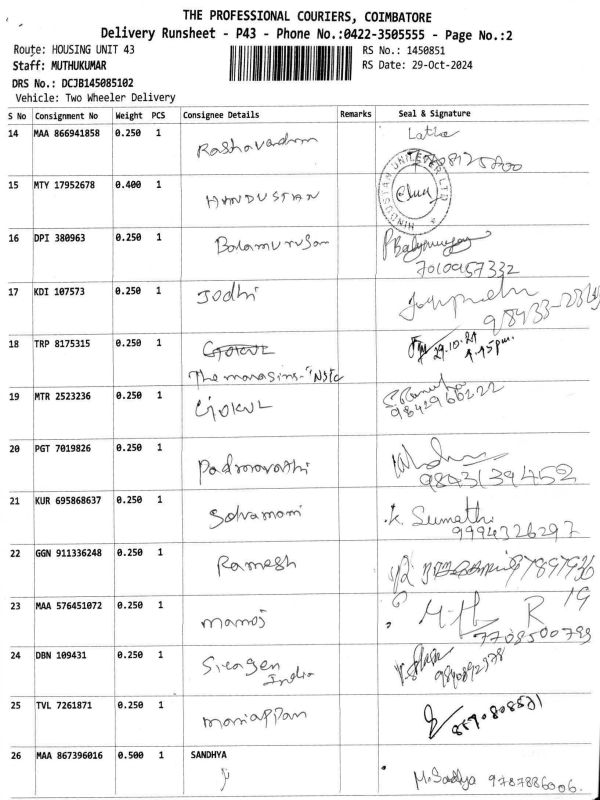 THE PROFESSIONAL COURIERS, COIMBATORE
Delivery Runsheet - P43 - Phone No.:0422-3505555 - Page No.:2
Route: HOUSING UNIT 43
RS No.: 1450851
Staff: MUTHUKUMAR
RS Date: 29-Oct-2024
DRS No.: DCJB145085102
Vehicle: Two Wheeler Delivery
S No Consignment No Weight PCS Consignee Details Remarks Seal & Signature
14 MAA 866941858 0.250 1 Latha
15 MTY 17952678 0.400 1 HINDUSTAN
HINDUSTAN UNILEVER LTD
16 DPI 380963 0.250 1 Balamurugan
7010957332
17 KDI 107573 0.250 1 Jodhi
18 TRP 8175315 0.250 1 GOKUL 29.10.24
4.45pm.
19 MTR 2523236 0.250 1 GOKUL
9842966222
20 PGT 7019826 0.250 1 Padmavathi
9843139452
21 KUR 695868637 0.250 1 Selvamani K. Sumathi
9994326297
22 GGN 911336248 0.250 1 Ramesh
23 MAA 576451072 0.250 1 Manoj
7708500793
24 DBN 109431 0.250 1 India
9840892378
25 TVL 7261871 0.250 1 Mariappan
26 MAA 867396016 0.500 1 SANDHYA
9787886006.